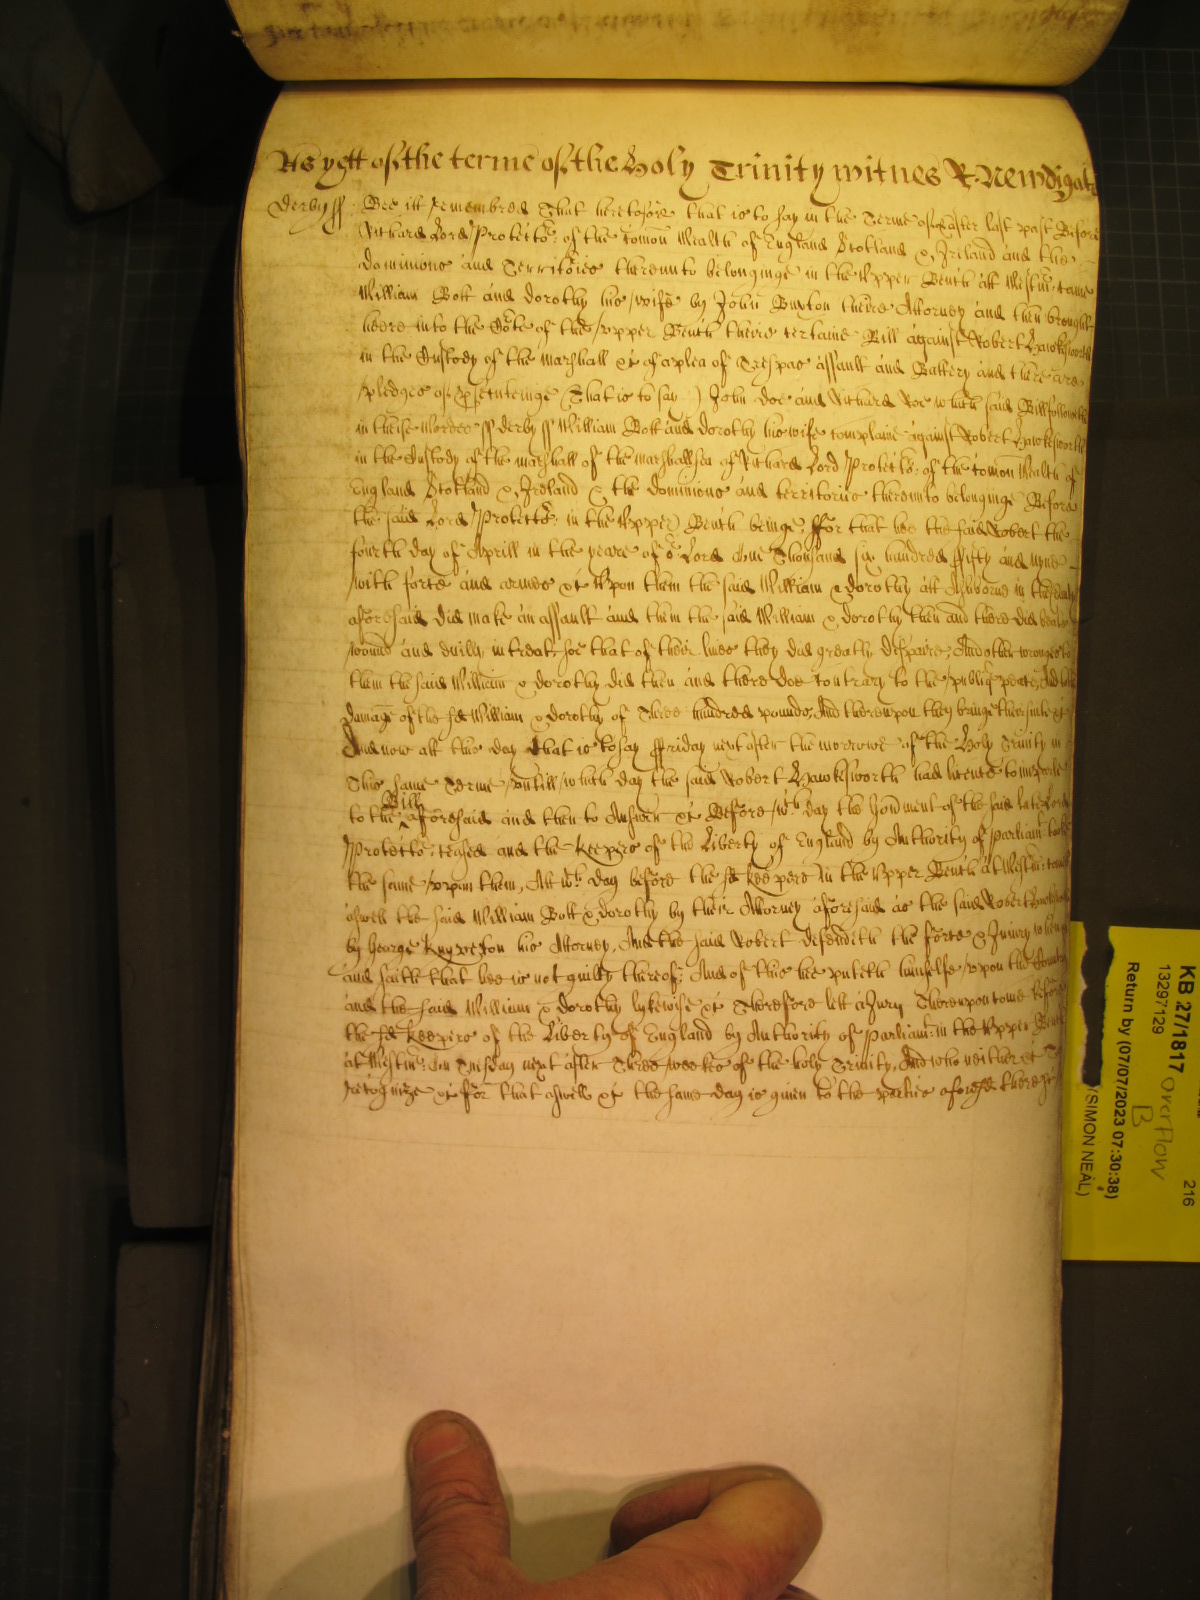 As yett of the terme of the Holy Trinity witnes R. Newdigate
Derby ss Bee itt remembred That heretofore that is to say in the Terme of Easter last past Before
Richard Lord Protector: of the Comon Wealth of England Scotland & Ireland and the
dominions and Territories thereunto belonginge in the Upper Bench att Westmr: came
William Bott and dorothy his wife by John Buxton theire Attorney and then brought
heere into the Cote of the upper Bench theire certaine Bill against Robert Hawkesworth
in the Custody of the Marshall &c of a plea of Trespas assault and Battery and there are
pledges of psecuteinge (That is to say) John doe and Richard Roe which said Bill followeth
in theise wordes ss derby ss William Bott and dorothy his wife complaine against Robert Hawkesworth
in the Custody of the marshall of the marshallsea of Richard Lord Protector: of the Comon Wealth of
England Scotland & Ireland & the dominions and territories thereunto belonginge Before
the said Lord Protector: in the Upper Bench beinge, ffor that hee the said Robert the
fourth day of Aprill in the yeare of or Lord One Thousand six hundred ffifty and nyne
with force and armes &c Upon them the said William & dorothy att in the County
aforesaid did make an assault and them the said William & dorothy then and there did beate
wound and evilly intreat, soe that of their lives they did greatly despaire, And other wronges to
them the said William & dorothy did then and there doe contrary to the publiq peace, And to the
damage of the sd William & dorothy of Three hundred pounds, And thereupon they bringe their suite &c
And now att this day that is to say ffriday next after the morrowe of the Holy Trinity in
This same Terme untill which day the said Robert Hawkesworth had licence to imparle
to the Bill aforesaid and then to Answer &c Before wch day the Govment of the said late Lord
Protector: ceased and the Keepers of the Liberty of England by Authority of Parliamt: tooke
the same upon them, Att wch day before the sd Keepers in the Upper Bench at Westmr: come
aswell the said William Bott & dorothy by their Attorney aforesaid as the said Robert Hawkesworth
by George Knyveton his Attorney, And the said Robert defendeth the force & Iniury when &c
and saith that hee is not guilty thereof; And of this hee putteth himselfe upon the Country
and the said William & dorothy lykewise &c Therefore lett a Jury Thereupon come before
the sd Keepers of the Liberty of England by Authority of Parliamt: in the Upper Bench
at Westmr: on Tuesday next after Three weekes of the holy Trinity, And who neither &c To
recognize &c for that aswell &c the same day is given to the parties aforesd there &c
KB 27/1817
216
13297129
overflow
B
Return by (07/07/2023 07:30:38)
(SIMON NEAL)